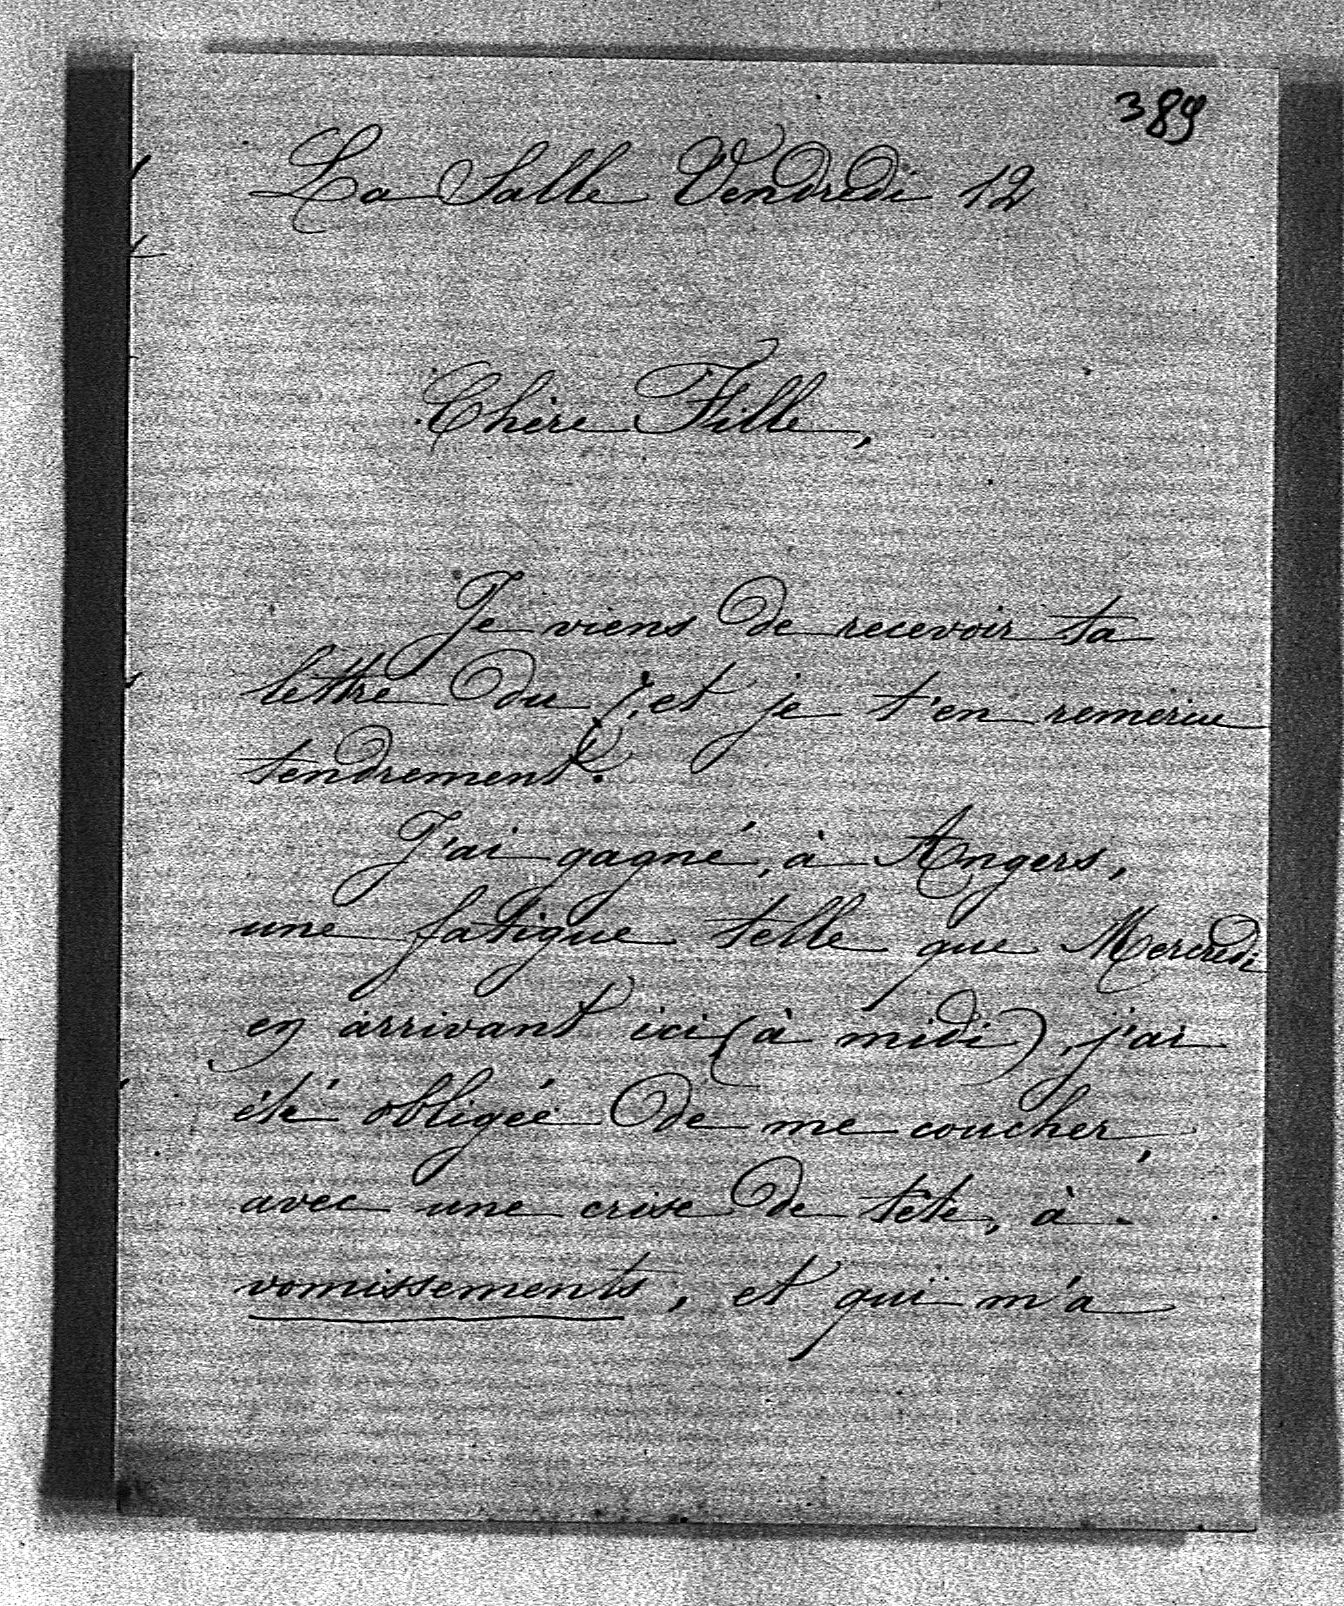 389
La Salle Vendredi 12
Chère Fille,
Je viens de recevoir ta
lettre du 7, et je t'en remercie
tendrement.
J'ai gagné, à Angers,
une fatigue telle que Mercredi
en arrivant ici (à midi), j'ai
été obligée de me coucher,
avec une crise de tête, à
vomissements, et qui m'a